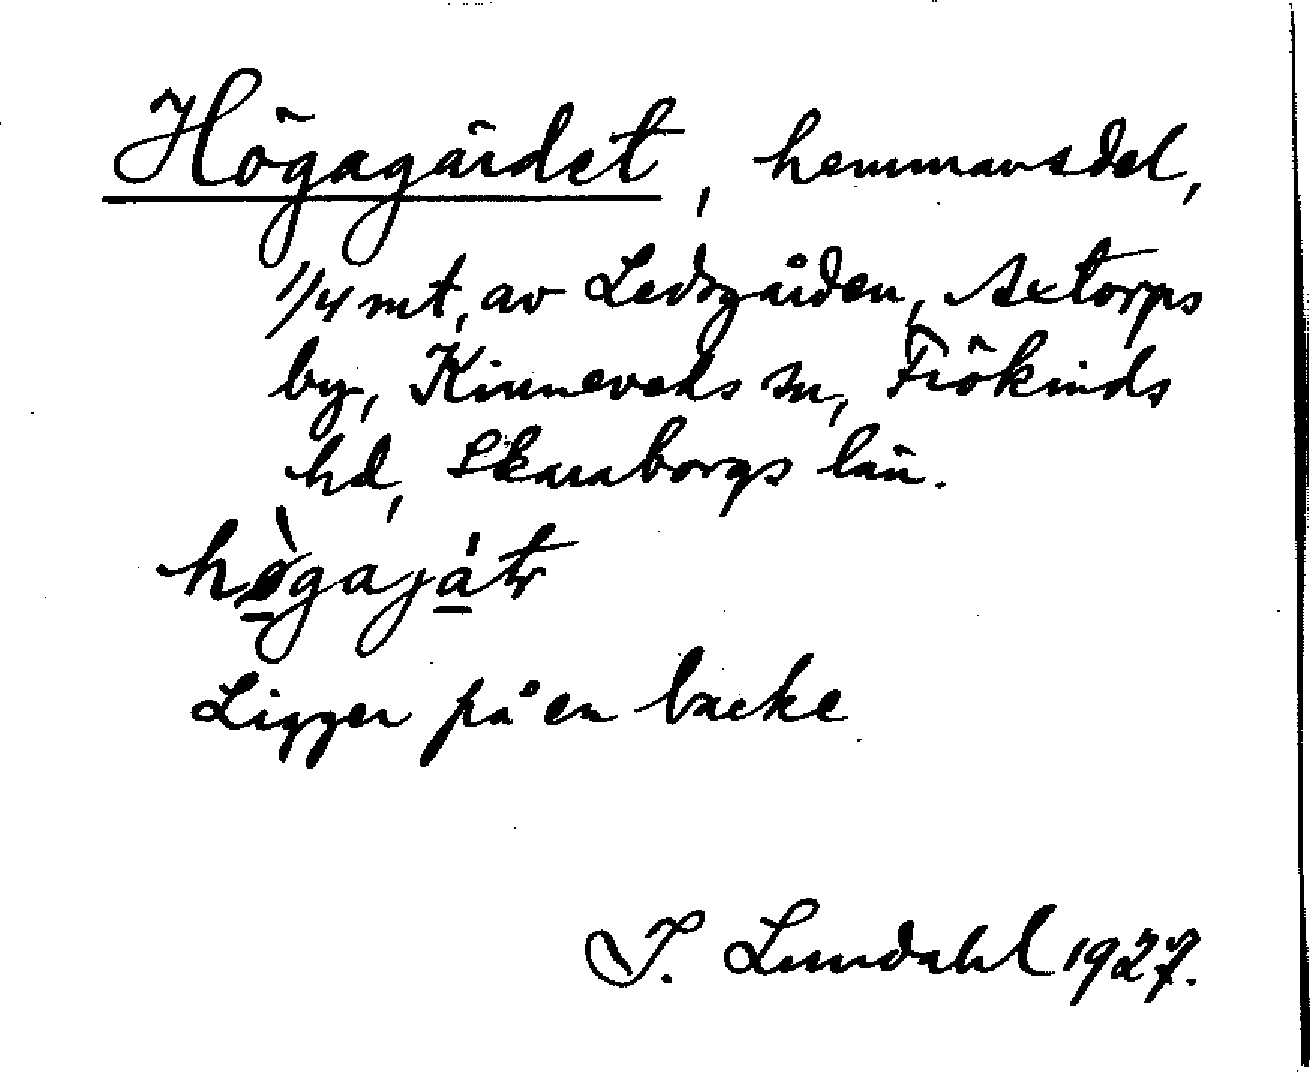 Högagärdet, hemmansdel,
1/4 mt, av Ledsgården, Axtorps
by, Kinneveds sn, Frökinds
hd, Skaraborgs län.
hø̀gajátr
Ligger på en backe
I. Lundahl 1927.